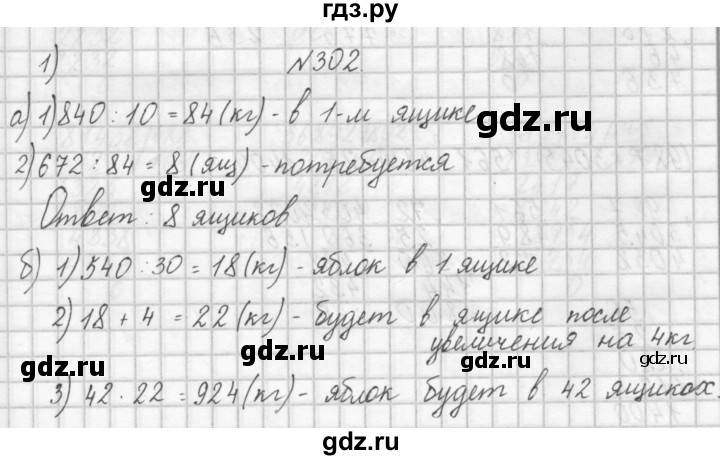 гдз.ру
1) №302.
а) 1) 840 : 10 = 84 (кг) - в 1-м ящике
gdz.ru
2) 672 : 84 = 8 (ящ) - потребуется
gdz.ru
Ответ: 8 ящиков
б) 1) 540 : 30 = 18 (кг) - яблок в 1 ящике
2) 18 + 4 = 22 (кг) - будет в ящике после
увеличения на 4 кг
gdz.ru
gdz.ru
3) 42 · 22 = 924 (кг) - яблок будет в 42 ящиках.
gdz.ru